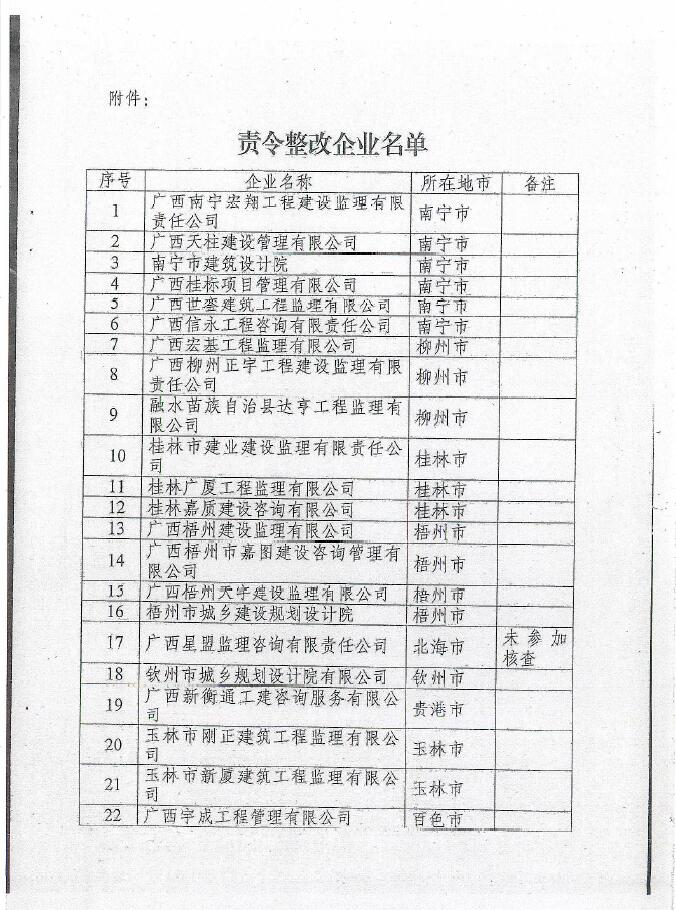 附件：
责令整改企业名单
序号 企业名称 所在地市 备注
1 广西南宁宏翔工程建设监理有限责任公司 南宁市
2 广西天柱建设管理有限公司 南宁市
3 南宁市建筑设计院 南宁市
4 广西桂标项目管理有限公司 南宁市
5 广西世銮建筑工程监理有限公司 南宁市
6 广西信永工程咨询有限责任公司 南宁市
7 广西宏基工程监理有限公司 柳州市
8 广西柳州正宇工程建设监理有限责任公司 柳州市
9 融水苗族自治县达亨工程监理有限公司 柳州市
10 桂林市建业建设监理有限责任公司 桂林市
11 桂林广厦工程监理有限公司 桂林市
12 桂林嘉质建设咨询有限公司 桂林市
13 广西梧州建设监理有限公司 梧州市
14 广西梧州市嘉图建设咨询管理有限公司 梧州市
15 广西梧州天宇建设监理有限公司 梧州市
16 梧州市城乡建设规划设计院 梧州市
17 广西星盟监理咨询有限责任公司 北海市 未参加核查
18 钦州市城乡规划设计院有限公司 钦州市
19 广西新衡通工建咨询服务有限公司 贵港市
20 玉林市刚正建筑工程监理有限公司 玉林市
21 玉林市新厦建筑工程监理有限公司 玉林市
22 广西宇成工程管理有限公司 百色市